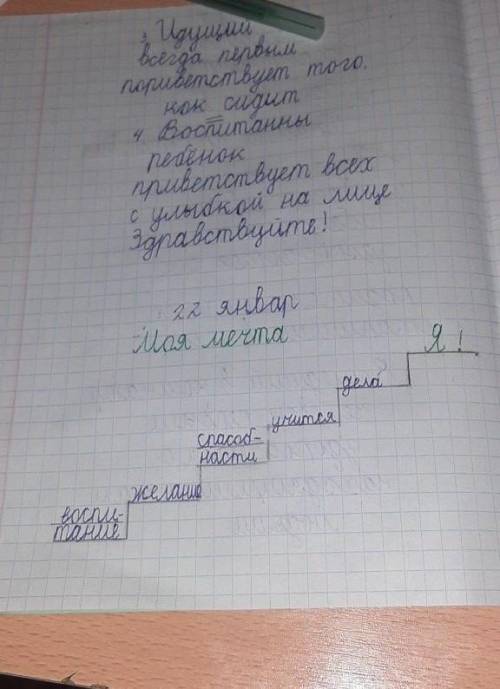 3. Идущий
всегда первым
пориветствует того.
кок сидит
4. Воспитанны
ребёнок
приветствует всех
с улыбкой на лице
Здравствуйте!
22 январ
Моя мечта
Я !
дела
учится
способ-
насти
желание
воспи-
тание